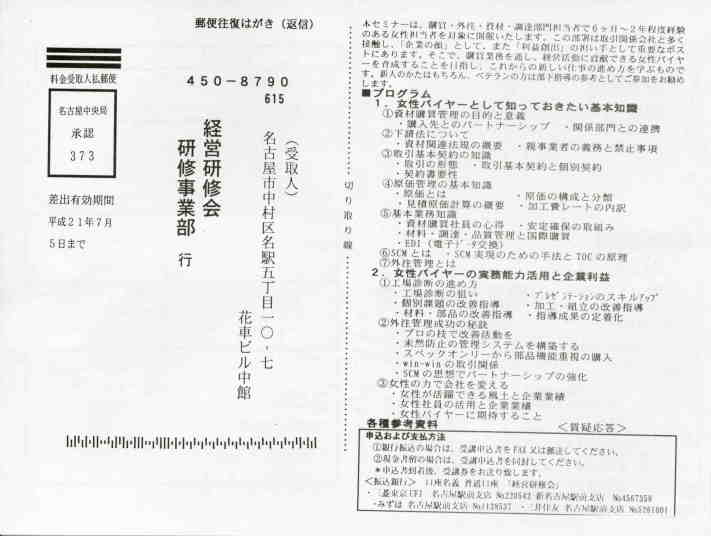 郵便往復はがき（返信）
料金受取人払郵便
名古屋中央局
承認
373
差出有効期間
平成21年7月
5日まで
450-8790
615
（受取人）
名古屋市中村区名駅五丁目一〇・七
花車ビル中館
経営研修会
研修事業部 行
切り取り線
本セミナーは、購買・外注・資材・調達部門担当者で6ヶ月〜2年程度経験
のある女性担当者を対象に開催いたします。この部署は取引関係会社と多く
接触し、「企業の顔」として、また「利益創出」の担い手として重要なポス
トにあります。そこで、購買業務を通し、経営活動に貢献できる女性バイヤ
ーを育成することを目指し、これからの新しい仕事の進め方を学ぶもので
す。新人のかたはもちろん、ベテランの方は部下指導の参考としてご参加をお勧め
します。
■プログラム
1．女性バイヤーとして知っておきたい基本知識
①資材購買管理の目的と意義
・購入先とのパートナーシップ ・関係部門との連携
②下請法について
・資材関連法規の概要 ・親事業者の義務と禁止事項
③取引基本契約の知識
・取引の形態 ・取引基本契約と個別契約
・契約書要性
④原価管理の基本知識
・原価とは ・原価の構成と分類
・見積原価計算の概要 ・加工費レートの内訳
⑤基本業務知識
・資材購買社員の心得 ・安定確保の取組み
・材料・調達・品質管理と国際購買
・EDI（電子ﾃﾞｰﾀ交換）
⑥SCMとは ・SCM実現のための手法とTOCの原理
⑦外注管理とは
2．女性バイヤーの実務能力活用と企業利益
①工場診断の進め方
・工場診断の狙い ・ﾌﾟﾚｾﾞﾝﾃｰｼｮﾝのスキルｱｯﾌﾟ
・個別課題の改善指導 ・加工・組立の改善指導
・材料・部品の改善指導 ・指導成果の定着化
②外注管理成功の秘訣
・プロの技で改善活動を
・未然防止の管理システムを構築する
・スペックオンリーから部品機能重視の購入
・win-winの取引関係
・SCMの思想でパートナーシップの強化
③女性の力で会社を変える
・女性が活躍できる風土と企業業績
・女性社員の活用と企業業績
・女性バイヤーに期待すること
各種参考資料 ＜質疑応答＞
申込および支払方法
①銀行振込の場合は、受講申込書をFAX又は郵送してください。
②現金書留の場合は、受講申込書を同封してください。
＊申込書到着後、受講券をお送り致します。
＜振込銀行＞ 口座名義 普通口座 「経営研修会」
・三菱東京UFJ 名古屋駅前支店 No220542 新名古屋駅前支店 No4567359
・みずほ 名古屋駅前支店 No1128537 ・三井住友 名古屋駅前支店